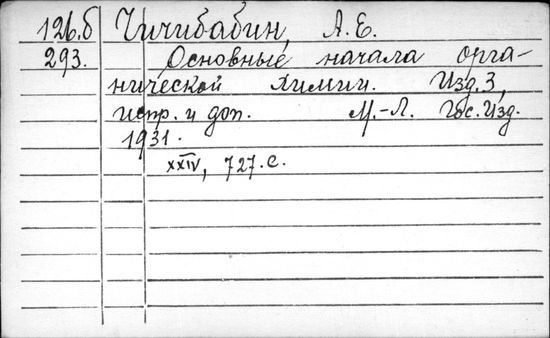 126.б Чичибабин, А.Е.
293. Основные начала орга-
нической химии. Изд. 3,
испр. и доп. М.-Л. Гос. Изд.
1931.
XXIV, 727. с.